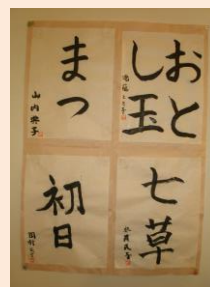 おと
し玉
まつ
山内典子
七草
初日